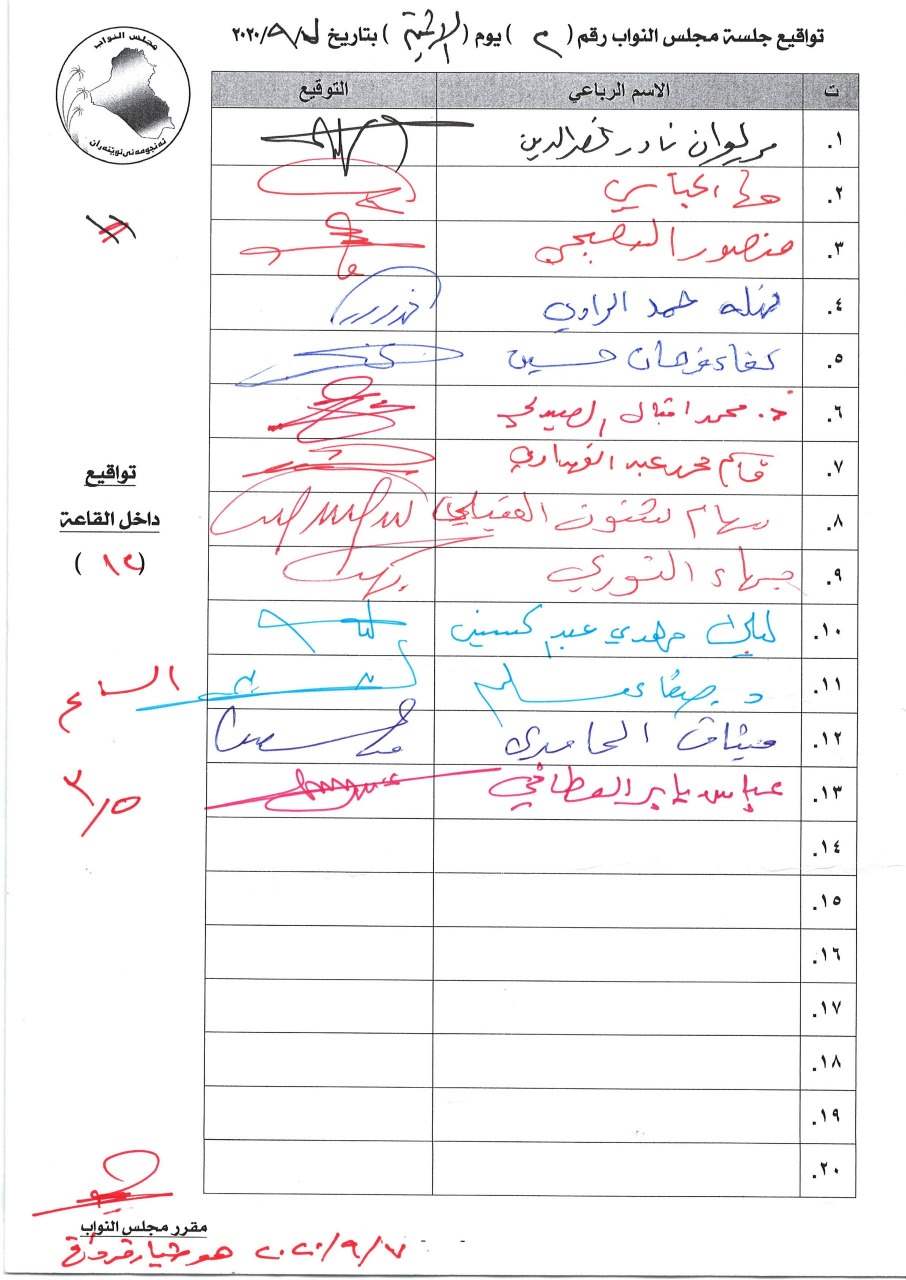 تواقيع جلسة مجلس النواب رقم (٢) يوم (الاثنين) بتاريخ ٧/٩/٢٠٢٠
مجلس النواب
ئەنجومەنی نوێنەران
ت الاسم الرباعي التوقيع
١. مريوان نادر
٢. العباسي
٣. منصور البعيجي
٤. نهله حمد الراوي
٥. كفاء فرحان حسين
٦. د. محمد اقبال الصيدلي
٧. قاسم محمد عبد الفهداوي
٨. سهام شنون العقيلي
٩. بهاء النوري
١٠. ليلى مهدي عبد الحسين
١١. د. صفاء
١٢. ميثاق الحامدي
١٣. عباس يابر العطافي
١٤.
١٥.
١٦.
١٧.
١٨.
١٩.
٢٠.
تواقيع
داخل القاعة
(١٢)
٣/٥
مقرر مجلس النواب
٢٠٢٠/٩/٧